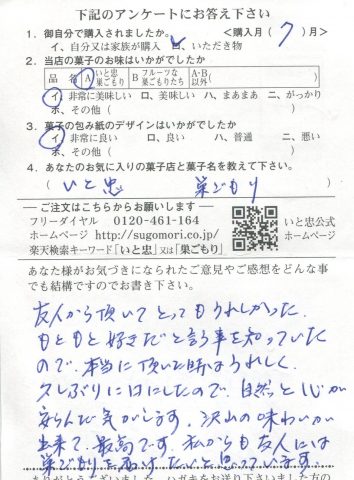 下記のアンケートにお答え下さい
1. 御自分で購入されましたか。 <購入月( 7 )月>
イ、自分又は家族が購入 ロ、いただき物
2. 当店の菓子のお味はいかがでしたか
品名 A いと忠巣ごもり B フルーツな巣ごもりたち A・B以外
イ、非常に美味しい ロ、美味しい ハ、まあまあ ニ、がっかり
ホ、その他( )
3. 菓子の包み紙のデザインはいかがでしたか
イ、非常に良い ロ、良い ハ、普通 ニ、悪い
ホ、その他( )
4. あなたのお気に入りの菓子店と菓子名を教えて下さい。
( いと忠 巣ごもり )
―ご注文はこちらからお願いします―
フリーダイヤル 0120-461-164
ホームページ http://sugomori.co.jp/
楽天検索キーワード「いと忠」又は「巣ごもり」
いと忠公式
ホームページ
あなた様がお気づきになられたご意見やご感想をどんな事
でも結構ですのでお書き下さい。
友人から頂いてとってもうれしかった.
もともと好きだと言う事を知っていた
ので.本当に頂いた時はうれしく.
久しぶりに口にしたので.自然と心が
安らんだ気がします.沢山の味わいが
出来て.最高です.私からも友人には
巣ごもりをあげたいと思っています.
ありがとうございました。ハガキをお送り下さいました方の